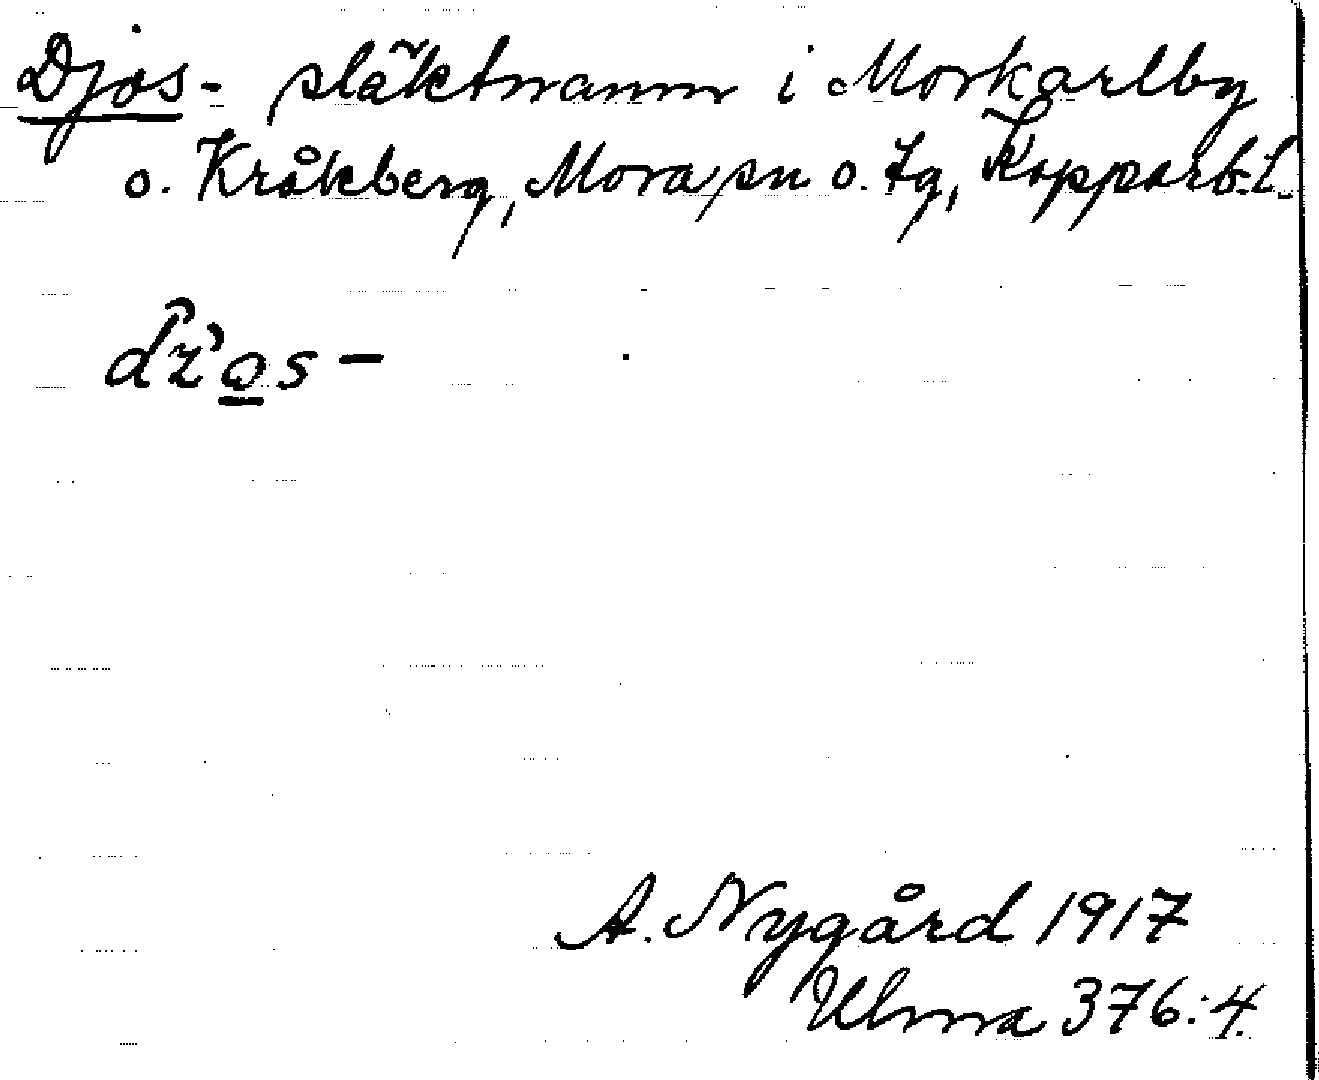 Djos- släktnamn i Morkarlby
o. Kråkberg, Mora sn o. tg, Kopparb. l.
dz̓o̲s -
A. Nygård 1917
Ulma 376:4.